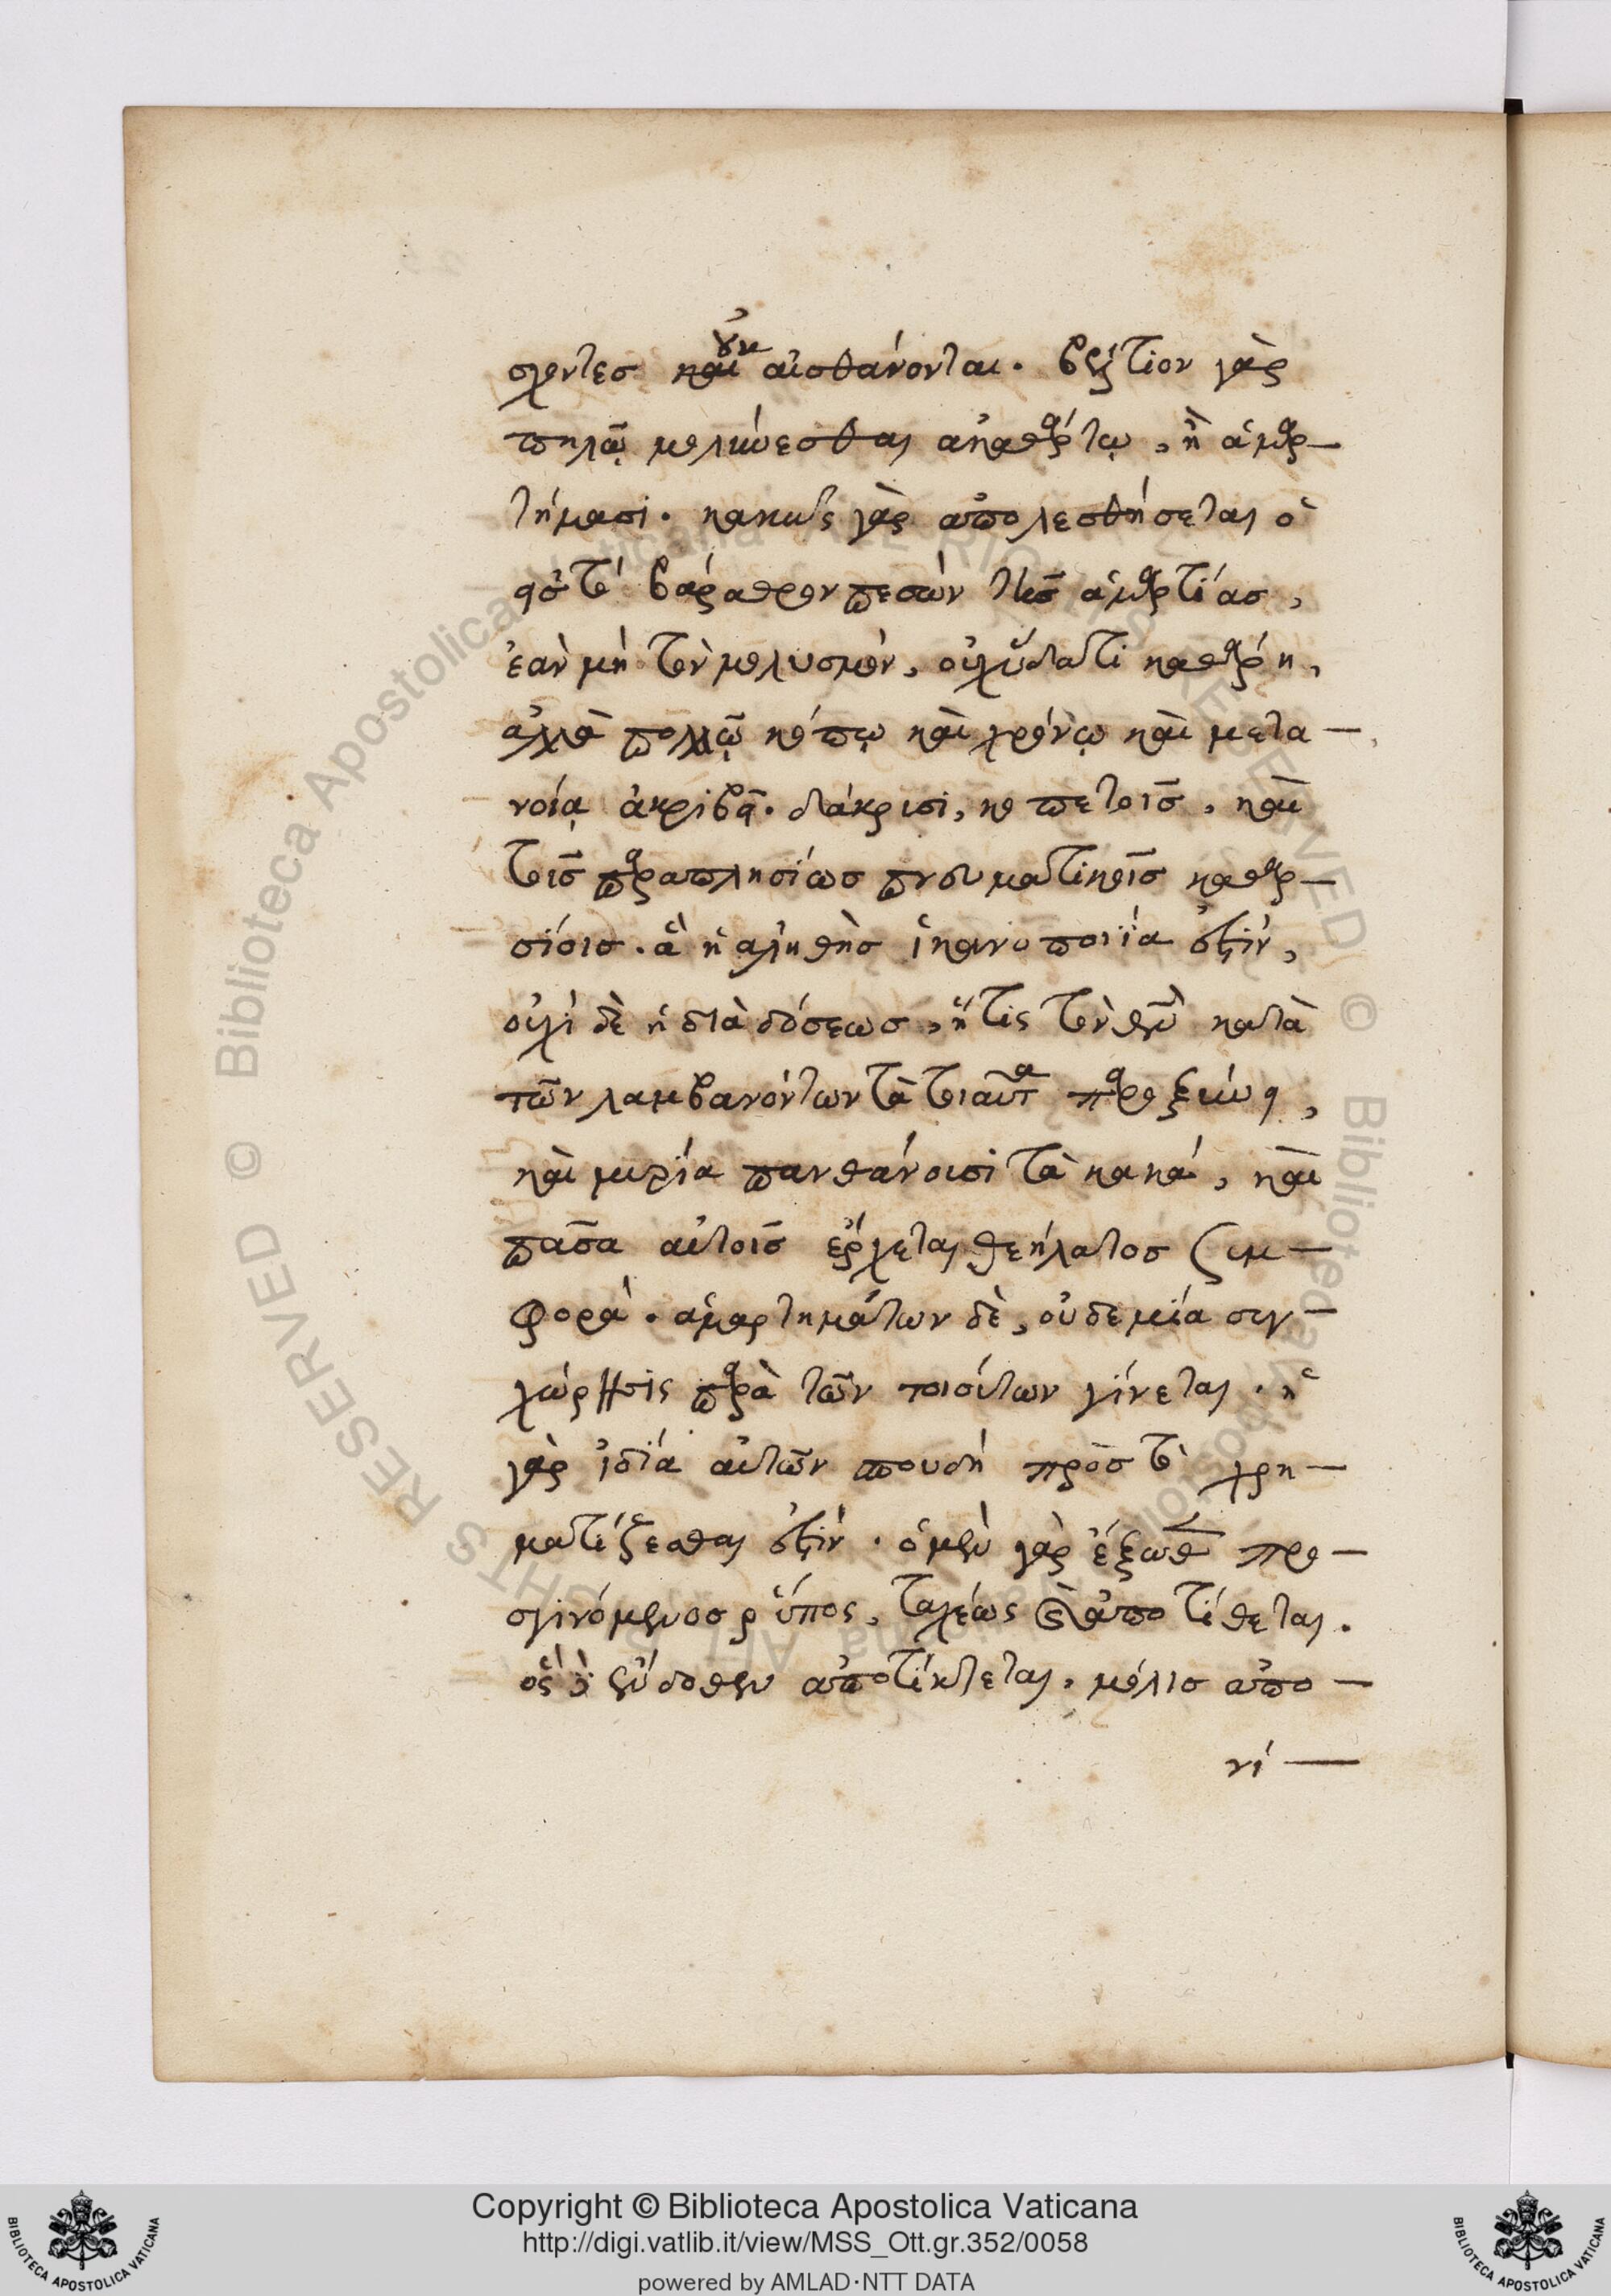 σχοντεσ καὶ οὐκ αἰσθάνονται. βέλτιον γὰρ
πηλῷ μολύνεσθαι ἀκαθάρτῳ, ἢ ἁμαρ—
τήμασι. κακῶς γὰρ ἀπολεσθήσεται ὁ
εἰς τὸ βάραθρον πεσὼν τῆσ ἁμαρτίασ,
ἐὰν μὴ τὸν μολυσμὸν, οὐχ ὕδατι καθάρῃ,
ἀλλὰ πολλῷ κόπῳ καὶ χρόνῳ καὶ μετα—
νοίᾳ ἀκριβεῖ. δάκρυσι, κοπετοῖσ, καὶ
τοῖσ παραπλησίωσ πνευματικοῖσ καθαρ—
σίοισ. ἃ ἡ ἀληθὴσ ἱκανοποιΐα ἐστὶν,
οὐχὶ δὲ ἡ διὰ δόσεωσ, ἥτις τὸν θεὸν κατὰ
τῶν λαμβανόντων τὰ τοιαῦτα παροξύνει,
καὶ μυρία πανθάνουσι τὰ κακά, καὶ
πᾶσα αὐτοῖσ ἔρχεται θεήλατοσ συμ—
φορά. ἁμαρτημάτων δὲ, οὐδεμία συγ—
χώρησις παρὰ τῶν τοιούτων γίνεται. ἡ
γὰρ ἰδία αὐτῶν σπουδὴ πρὸσ τὸ χρη—
ματίζεσθαι ἐστὶν. ὁ μὲν γὰρ ἔξωθεν προ—
σγινόμενοσ ῥύπος, ταχέως καὶ ἀποτίθεται.
ὃς δ' ἔνδοθεν ἀποτίκτεται. μόλισ ἀπο—
νί—
Copyright © Biblioteca Apostolica Vaticana
http://digi.vatlib.it/view/MSS_Ott.gr.352/0058
powered by AMLAD·NTT DATA
BIBLIOTECA APOSTOLICA VATICANA
BIBLIOTECA APOSTOLICA VATICANA